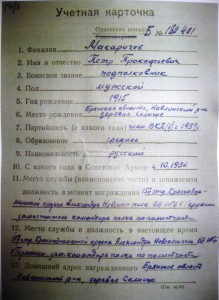 Учетная карточка
Орденской книжки Б №
1. Фамилия Макарычев
2. Имя и отчество Петр Прокофьевич
3. Воинское звание подполковник
4. Пол мужской
5. Год рождения 1915
6. Место рождения Брянская область, Навлинский р-н
деревня Селище
7. Партийность (с какого года) член ВКП(б) с 1939
8. Образование среднее
9. Национальность русский
10. С какого года в Советской Армии с 10.1936
11. Место службы (наименование части) и занимаемая
должность в момент награждения
ордена Александра Невского
заместитель командира полка по политчасти
12. Место службы и должность в настоящее время
ордена Александра Невского
зам. командира полка по политчасти
13. Домашний адрес награжденного Брянская область
Навлинский р-н, деревня Селище